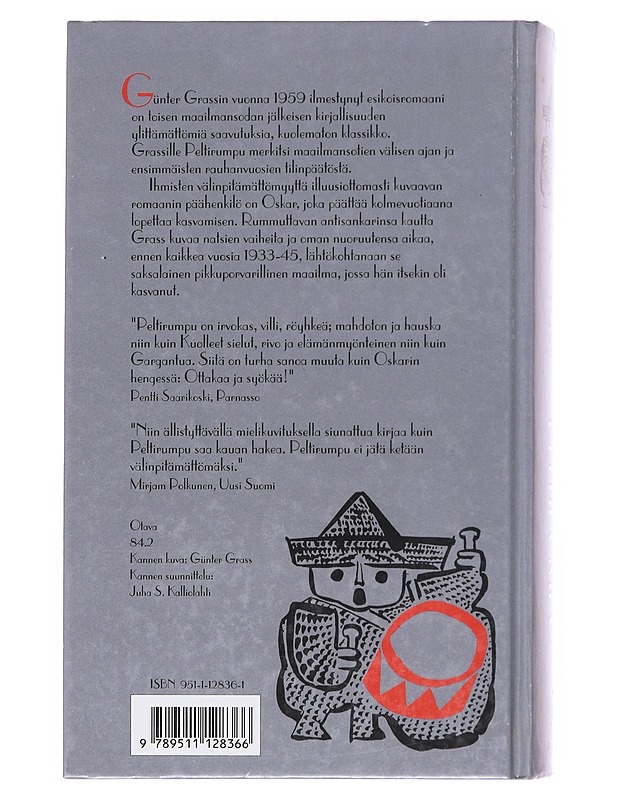 Günter Grassin vuonna 1959 ilmestynyt esikoisromaani
on toisen maailmansodan jälkeisen kirjallisuuden
ylittämättömiä saavutuksia, kuolematon klassikko.
Grassille Peltirumpu merkitsi maailmansotien välisen ajan ja
ensimmäisten rauhanvuosien tilinpäätöstä.
Ihmisten välinpitämättömyyttä illuusiottomasti kuvaavan
romaanin päähenkilö on Oskar, joka päättää kolmevuotiaana
lopettaa kasvamisen. Rummuttavan antisankarinsa kautta
Grass kuvaa natsien vaiheita ja oman nuoruutensa aikaa,
ennen kaikkea vuosia 1933-45, lähtökohtanaan se
saksalainen pikkuporvarillinen maailma, jossa hän itsekin oli
kasvanut.
"Peltirumpu on irvokas, villi, röyhkeä; mahdoton ja hauska
niin kuin Kuolleet sielut, rivo ja elämänmyönteinen niin kuin
Gargantua. Siitä on turha sanoa muuta kuin Oskarin
hengessä: Ottakaa ja syökää!"
Pentti Saarikoski, Parnasso
"Niin ällistyttävällä mielikuvituksella siunattua kirjaa kuin
Peltirumpu saa kauan hakea. Peltirumpu ei jätä ketään
välinpitämättömäksi."
Mirjam Polkunen, Uusi Suomi
Otava
84.2
Kannen kuva: Günter Grass
Kannen suunnittelu:
Juha S. Kalliolahti
ISBN 951-1-12836-1
9 789511 128366